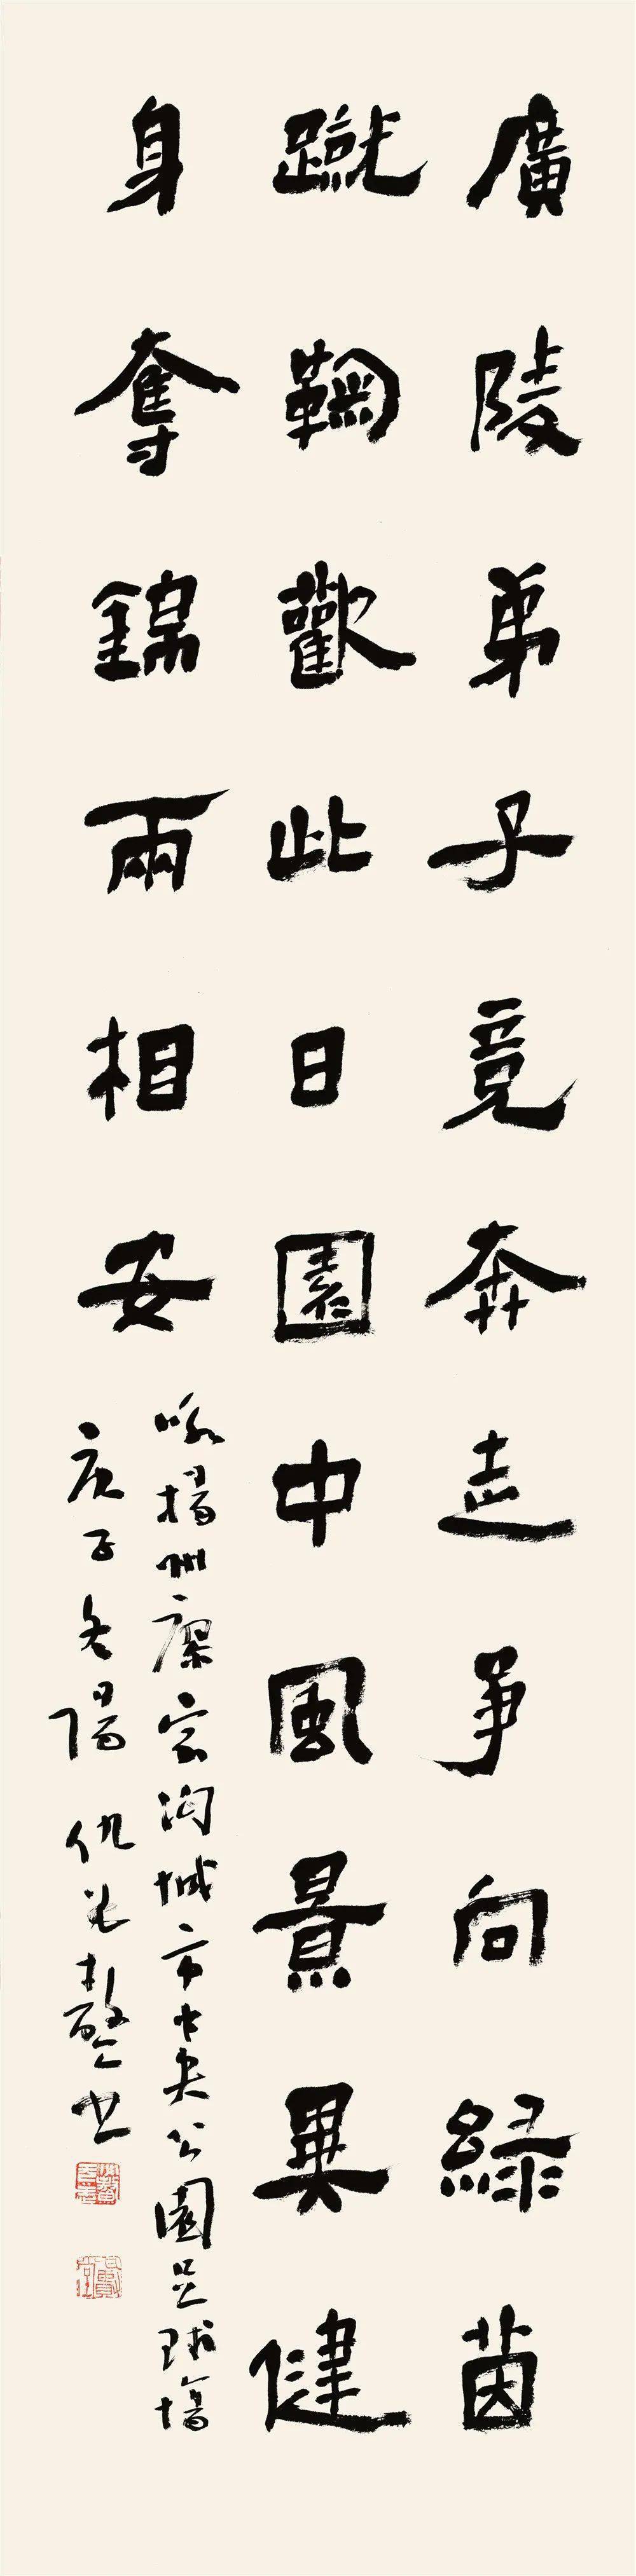 廣陵弟子竞奔走爭向綠茵
蹴鞠歡此日園中風景異健
身奪錦兩相安
咏揚州廖家沟城市中央公園足球場
庚子冬陽仇 鼇书